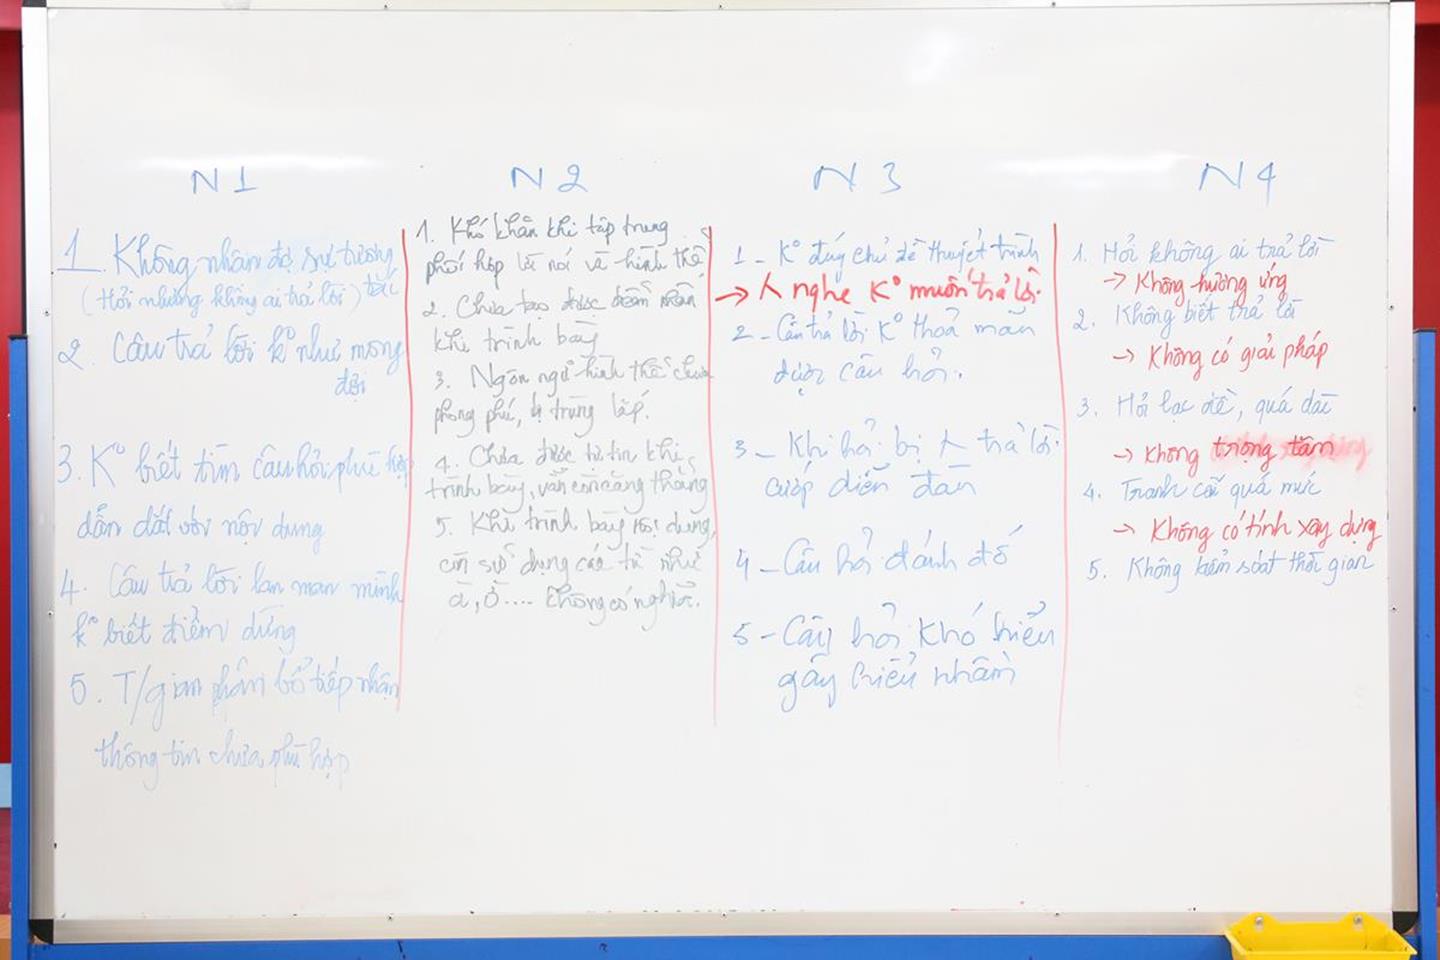 N1
1. Không nhận đc sự tương tác
(Hỏi nhưng không ai trả lời)
2. Câu trả lời k° như mong
đợi
3. K° biết tìm câu hỏi phù hợp
dẫn dắt với nội dung
4. Câu trả lời lan man mình
k° biết điểm dừng
5. T/gian phân bổ tiếp nhận
thông tin chưa phù hợp
N2
1. Khó khăn khi tập trung
phối hợp lời nói và hình thể
2. Chưa tạo được điểm nhấn
khi trình bày
3. Ngôn ngữ hình thể chưa
phong phú, bị trùng lắp.
4. Chưa được tự tin khi
trình bày, vẫn còn căng thẳng
5. Khi trình bày nội dung,
còn sử dụng các từ như
à, ờ.... không có nghĩa.
N3
1 - K° đúng chủ đề thuyết trình
→ nghe K° muốn trả lời.
2 - Câu trả lời K° thoả mãn
được câu hỏi.
3 - Khi hỏi bị trả lời
cướp diễn đàn
4 - Câu hỏi đánh đố
5 - Câu hỏi khó hiểu
gây hiểu nhầm
N4
1. Hỏi không ai trả lời
→ Không hưởng ứng
2. Không biết trả lời
→ Không có giải pháp
3. Hỏi lạc đề, quá dài
→ Không trọng tâm
4. Tranh cãi quá mức
→ Không có tính xây dựng
5. Không kiểm soát thời gian